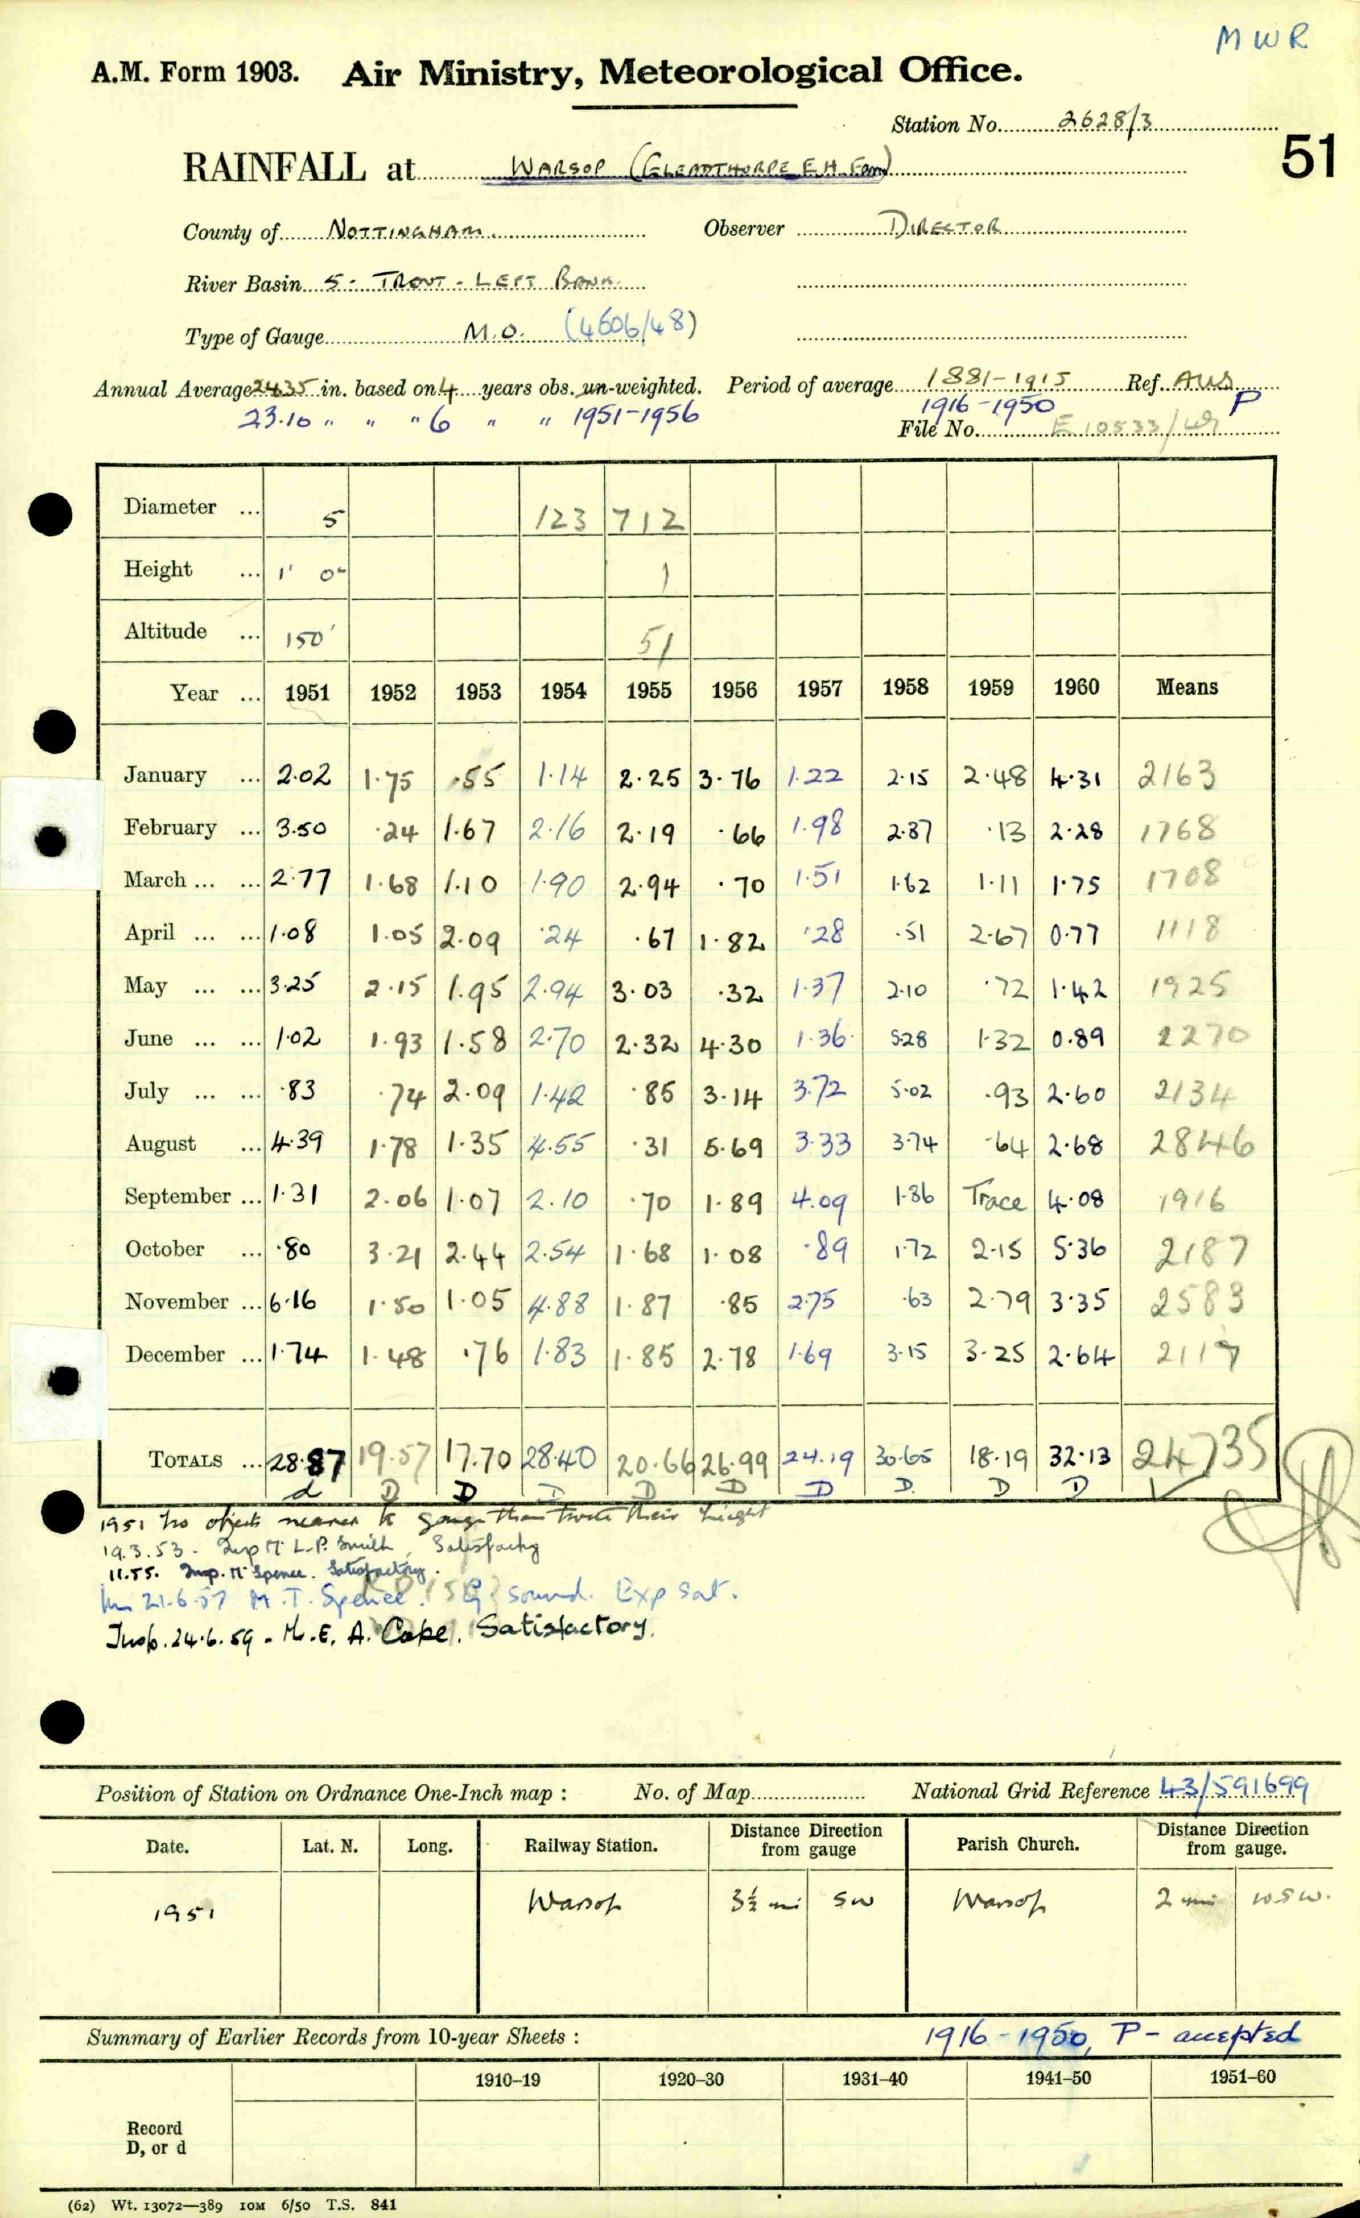 MWR
A.M. Form 1903. Air Ministry, Meteorological Office.
Station No. 2628/3
51
RAINFALL at WARSOP (GLEADTHORPE E.H. Farm)
County of NOTTINGHAM. Observer DIRECTOR
River Basin 5 - TRENT - LEFT BANK.
Type of Gauge M.O. (4606/48)
Annual Average 24.35 in. based on 4 years obs. un-weighted. Period of average 1881-1915 Ref.
23.10 " " " 6 " " 1951-1956 1916-1950 P
File No. E 10533/49
Diameter ... 5 123 712
Height ... 1' 0" 1
Altitude ... 150' 51
Year ... 1951 1952 1953 1954 1955 1956 1957 1958 1959 1960 Means
January ... 2.02 1.75 .55 1.14 2.25 3.76 1.22 2.15 2.48 4.31 2163
February ... 3.50 .24 1.67 2.16 2.19 .66 1.98 2.87 .13 2.28 1768
March ... ... 2.77 1.68 1.10 1.90 2.94 .70 1.51 1.62 1.11 1.75 1708
April ... ... 1.08 1.05 2.09 .24 .67 1.82 .28 .51 2.67 0.77 1118
May ... ... 3.25 2.15 1.95 2.94 3.03 .32 1.37 2.10 .72 1.42 1925
June ... ... 1.02 1.93 1.58 2.70 2.32 4.30 1.36 5.28 1.32 0.89 2270
July ... ... .83 .74 2.09 1.42 .85 3.14 3.72 5.02 .93 2.60 2134
August ... 4.39 1.78 1.35 4.55 .31 5.69 3.33 3.74 .64 2.68 2846
September ... 1.31 2.06 1.07 2.10 .70 1.89 4.09 1.86 Trace 4.08 1916
October ... .80 3.21 2.44 2.54 1.68 1.08 .89 1.72 2.15 5.36 2187
November ... 6.16 1.50 1.05 4.88 1.87 .85 2.75 .63 2.79 3.35 2583
December ... 1.74 1.48 .76 1.83 1.85 2.78 1.69 3.15 3.25 2.64 2117
TOTALS ... 28.87 19.57 17.70 28.40 20.66 26.99 24.19 30.65 18.19 32.13 24735
d D D D D D D D. D D
1951 No objects nearer to gauge than twice their height
19.3.53. Insp Mr L.P. Smith, Satisfactory
11.55. Insp. Mr Spence. Satisfactory.
21.6.57 M.T. Spence. G sound. Exp sat.
Insp. 24.6.59 - Mr. E. A. Cope. Satisfactory.
Position of Station on Ordnance One-Inch map : No. of Map National Grid Reference 43/591699
Date. Lat. N. Long. Railway Station. Distance from gauge Direction Parish Church. Distance from gauge. Direction
1951 Warsop 3½ mi SW Warsop 2 mi WSW.
Summary of Earlier Records from 10-year Sheets : 1916-1950, P - accepted
1910–19 1920–30 1931–40 1941–50 1951–60
Record
D, or d
(62) Wt. 13072—389 10M 6/50 T.S. 841